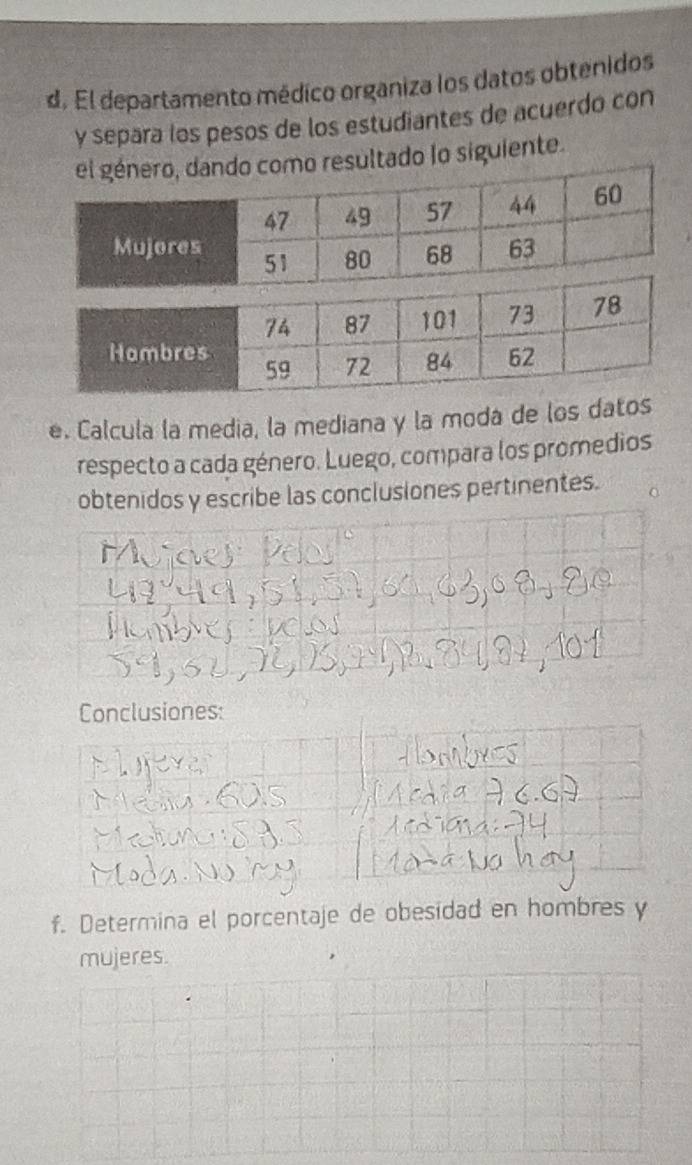 d. El departamento médico organiza los datos obtenidos
y separa los pesos de los estudiantes de acuerdo con
el género, dando como resultado lo siguiente.
Mujeres
47 49 57 44 60
51 80 68 63
Hombres
74 87 101 73 78
59 72 84 62
e. Calcula la media, la mediana y la moda de los datos
respecto a cada género. Luego, compara los promedios
obtenidos y escribe las conclusiones pertinentes.
Mujeres
49, 51, 57, 60, 63, 68, 80
Hombres:
59, 62, 72, 84, 87, 101
Conclusiones:
Mujeres Hombres
Media. 60.5 Media 76.67
Mediana: 59.5 Mediana: 74
Moda. No hay Moda No hay
f. Determina el porcentaje de obesidad en hombres y
mujeres.